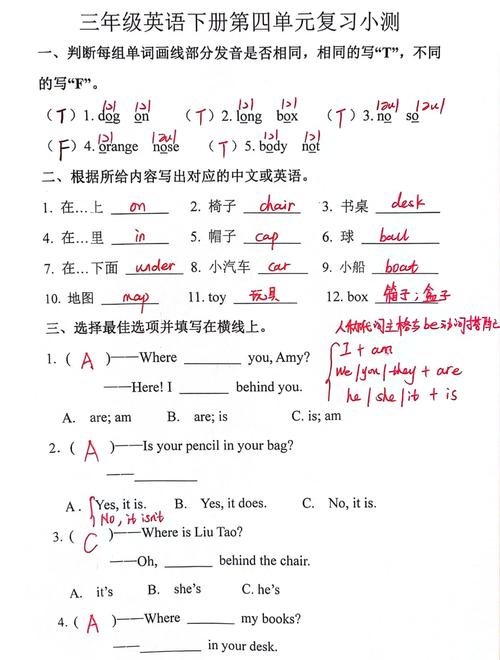 三年级英语下册第四单元复习小测
一、判断每组单词画线部分发音是否相同，相同的写“T”，不同
的写“F”。
/ɔ/ /ɔ/ /ɔ/ /ɔ/ /əu/ /əu/
（T）1. dog on （T）2. long box （T）3. no so
/ɔ/ /əu/ /ɔ/ /ɔ/
（F）4. orange nose （T）5. body not
二、根据所给内容写出对应的中文或英语。
1. 在…上 on 2. 椅子 chair 3. 书桌 desk
4. 在…里 in 5. 帽子 cap 6. 球 ball
7. 在…下面 under 8. 小汽车 car 9. 小船 boat
10. 地图 map 11. toy 玩具 12. box 箱子；盒子
三、选择最佳选项并填写在横线上。
人称代词主格与be动词搭配
I + am
we/you/they + are
he/she/it + is
1. ( A )——Where ______ you, Amy?
——Here! I ______ behind you.
A. are; am B. are; is C. is; am
2. ( A )——Is your pencil in your bag?
——________
A. Yes, it is. B. Yes, it does. C. No, it is.
No, it isn't
3. ( C )——Where is Liu Tao?
——Oh, ______ behind the chair.
A. it's B. she's C. he's
4. ( A )——Where ______ my books?
——______ in your desk.